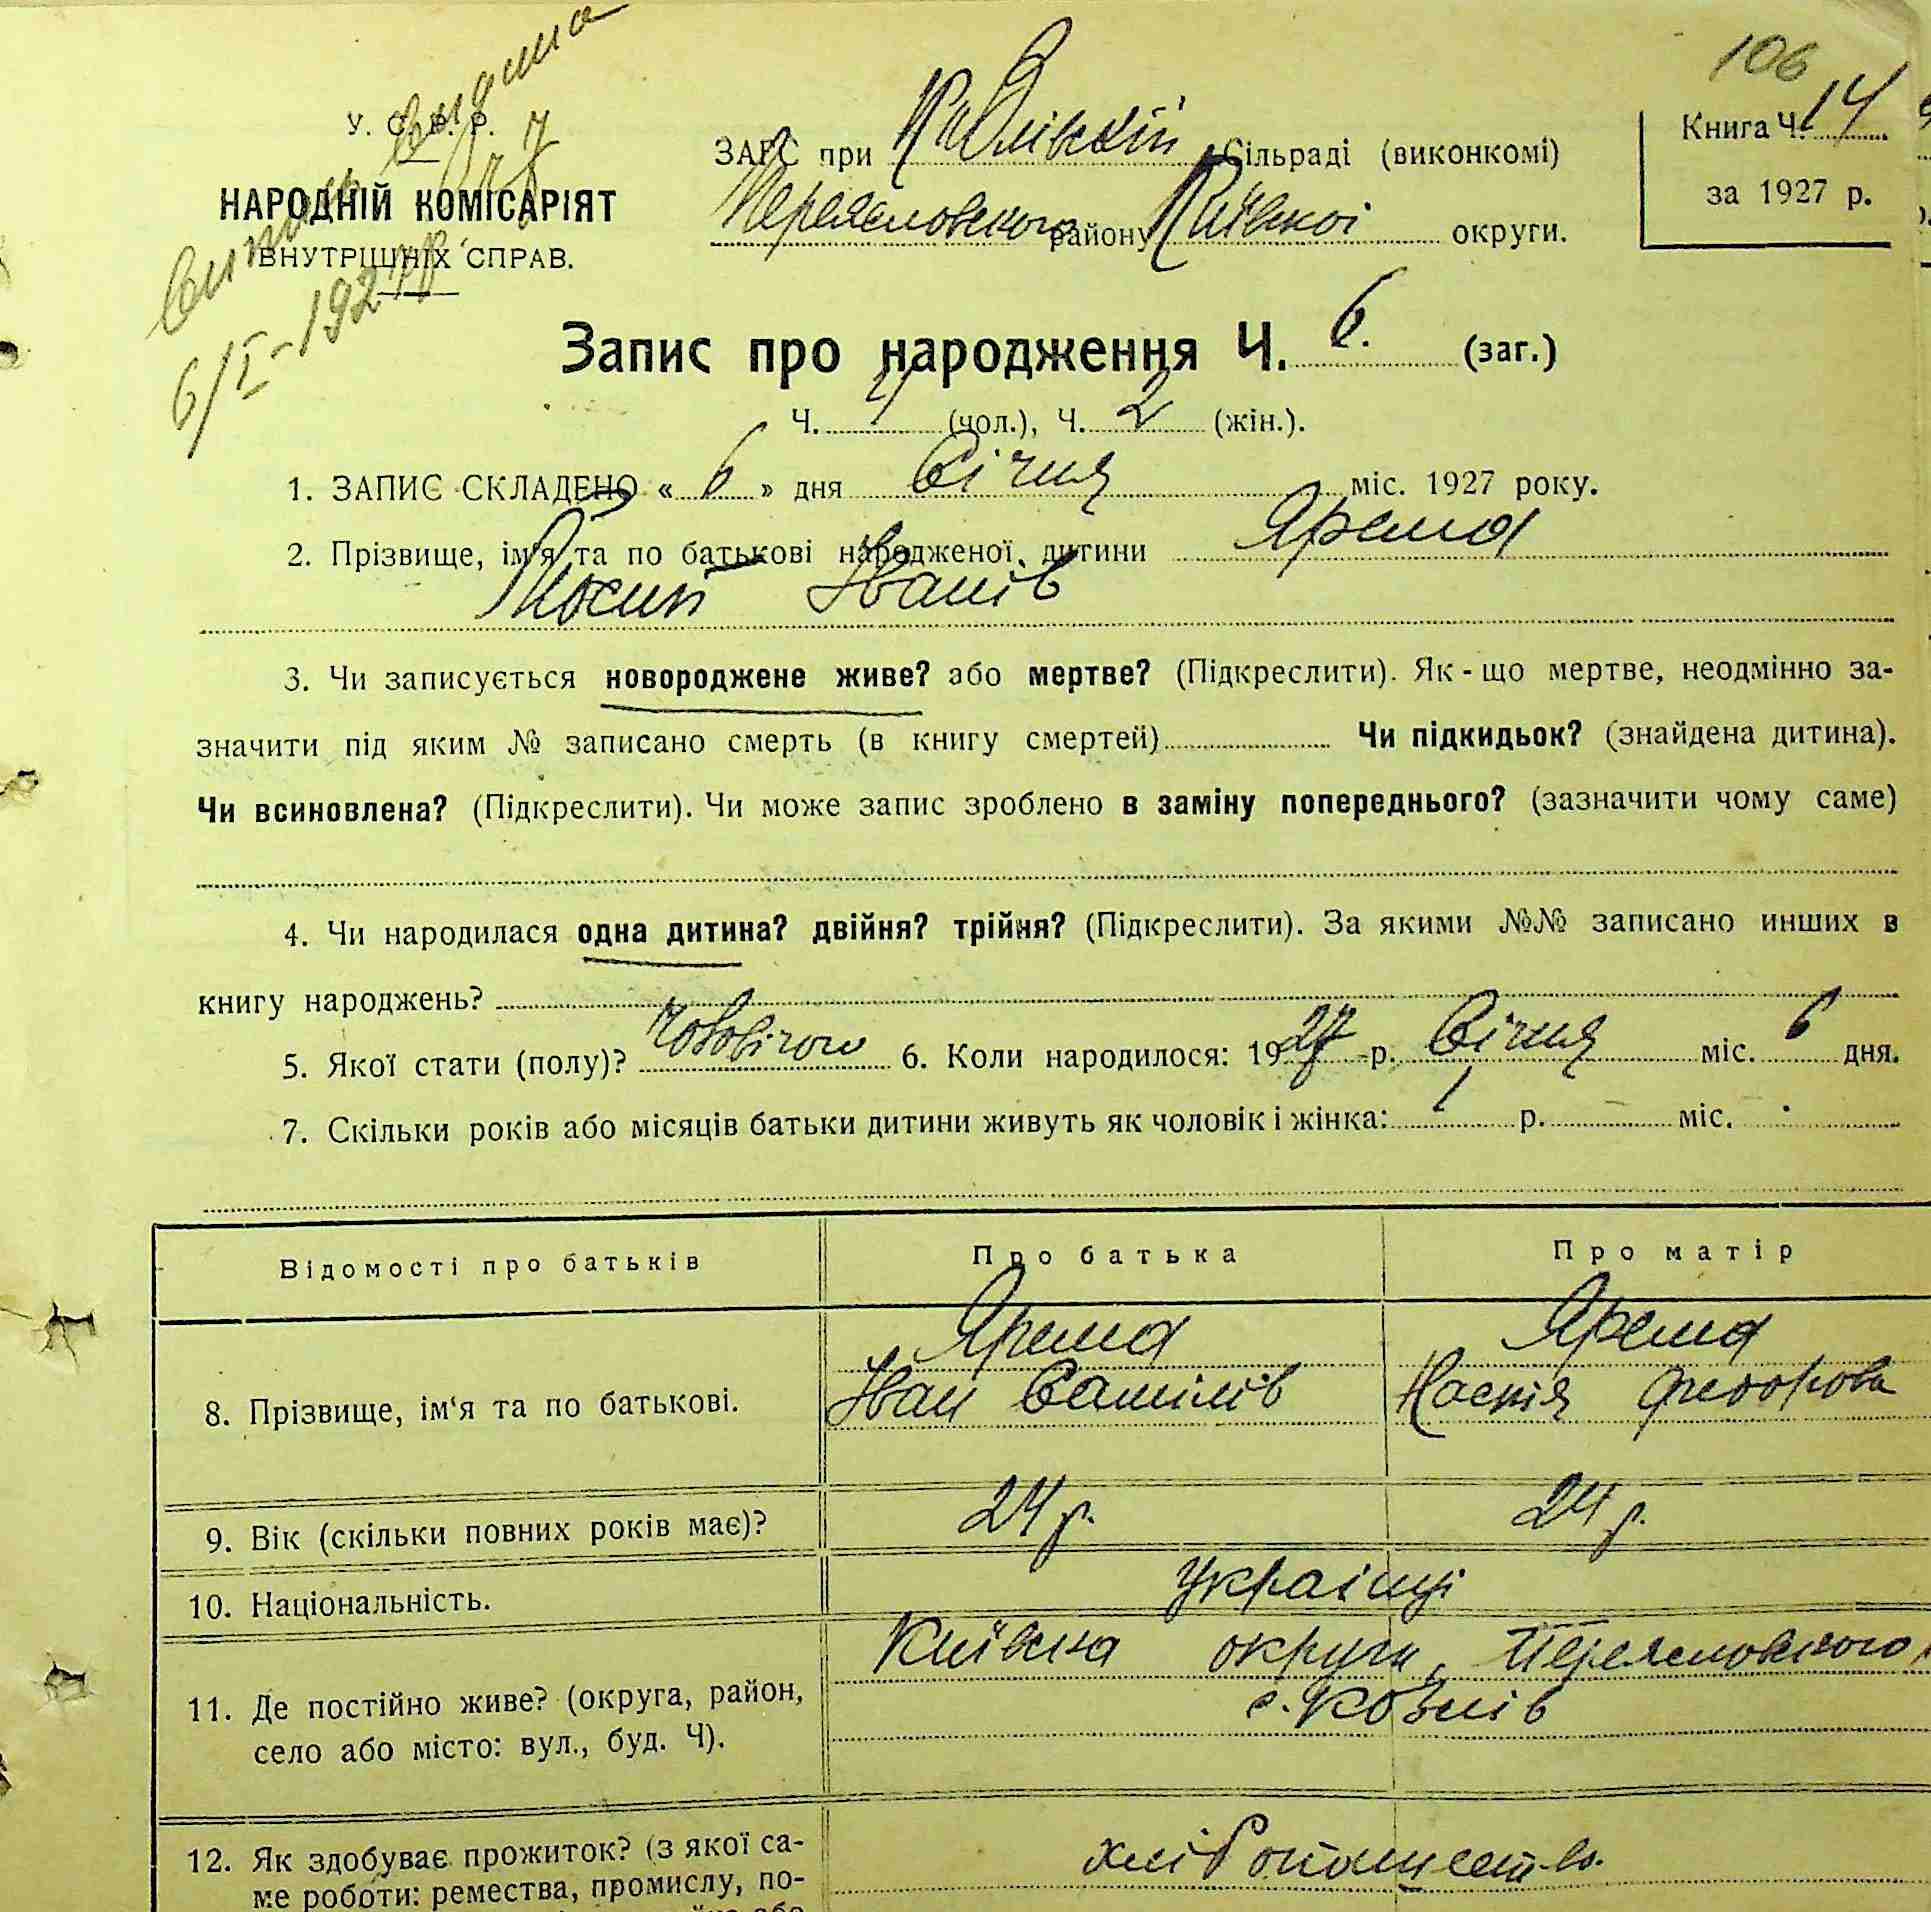 106
випись видана
6/I-1927 р
У. С. Р. Р.
НАРОДНІЙ КОМІСАРІЯТ
ВНУТРІШНІХ СПРАВ.
ЗАГС при Сільраді (виконкомі)
Переяслов­ского району Київскої округи.
Книга Ч. 14
за 1927 р.
Запис про народження Ч. 6. (заг.)
Ч. 4 (чол.), Ч. 2 (жін.).
1. ЗАПИС СКЛАДЕНО « 6 » дня Січня міс. 1927 року.
2. Прізвище, ім'я та по батькові народженої дитини Ярема
Йосип Іванів
3. Чи записується новороджене живе? або мертве? (Підкреслити). Як-що мертве, неодмінно за-
значити під яким № записано смерть (в книгу смертей) Чи підкидьок? (знайдена дитина).
Чи всиновлена? (Підкреслити). Чи може запис зроблено в заміну попереднього? (зазначити чому саме)
4. Чи народилася одна дитина? двійня? трійня? (Підкреслити). За якими №№ записано инших в
книгу народжень?
5. Якої стати (полу)? Чоловічого 6. Коли народилося: 1927 р. Січня міс. 6 дня.
7. Скільки років або місяців батьки дитини живуть як чоловік і жінка: 1 р. міс.
Відомості про батьків Про батька Про матір
8. Прізвище, ім'я та по батькові. Ярема Ярема
Іван Данилів Настя Федорова
9. Вік (скільки повних років має)? 24 р. 24 р.
10. Національність. Українці
11. Де постійно живе? (округа, район, Київска округи, Переясловского
село або місто: вул., буд. Ч). с. Козлів
12. Як здобуває прожиток? (з якої са- хліборобство
ме роботи: ремества, промислу, по-